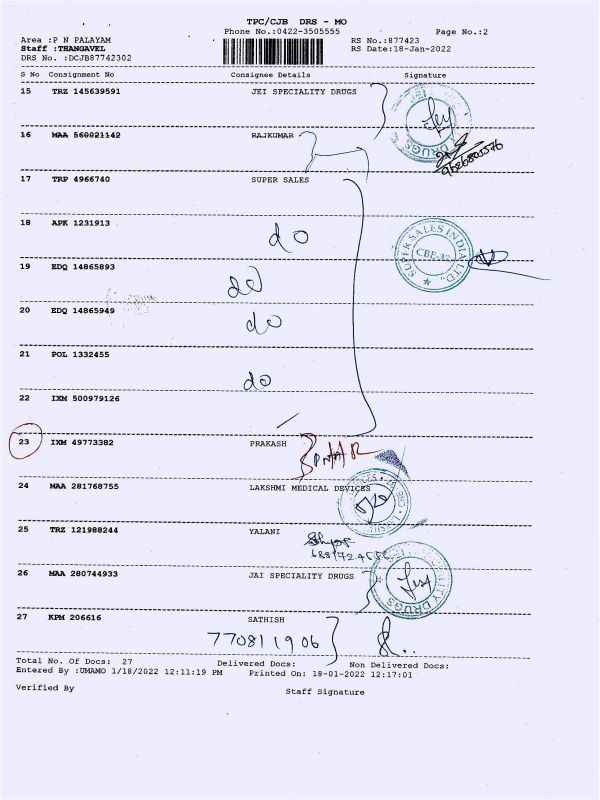 TPC/CJB DRS - MO
Phone No.:0422-3505555 Page No.:2
Area :P N PALAYAM RS No.:877423
Staff :THANGAVEL RS Date:18-Jan-2022
DRS No. :DCJB87742302
S No Consignment No Consignee Details Signature
15 TRZ 145639591 JEI SPECIALITY DRUGS
DRUGS
16 MAA 560021142 RAJKUMAR
17 TRP 4966740 SUPER SALES
18 APK 1231913 do
SUPER SALES INDIA LTD.,
CBE-37
19 EDQ 14865893 do
20 EDQ 14865949 do
21 POL 1332455 do
22 IXM 500979126
23 IXM 49773382 PRAKASH
24 MAA 281768755 LAKSHMI MEDICAL DEVICES
25 TRZ 121988244 YALANI
26 MAA 280744933 JAI SPECIALITY DRUGS
DRUGS
27 KPM 206616 SATHISH
770811906
Total No. Of Docs: 27 Delivered Docs: Non Delivered Docs:
Entered By :UMAMO 1/18/2022 12:11:19 PM Printed On: 18-01-2022 12:17:01
Verified By Staff Signature